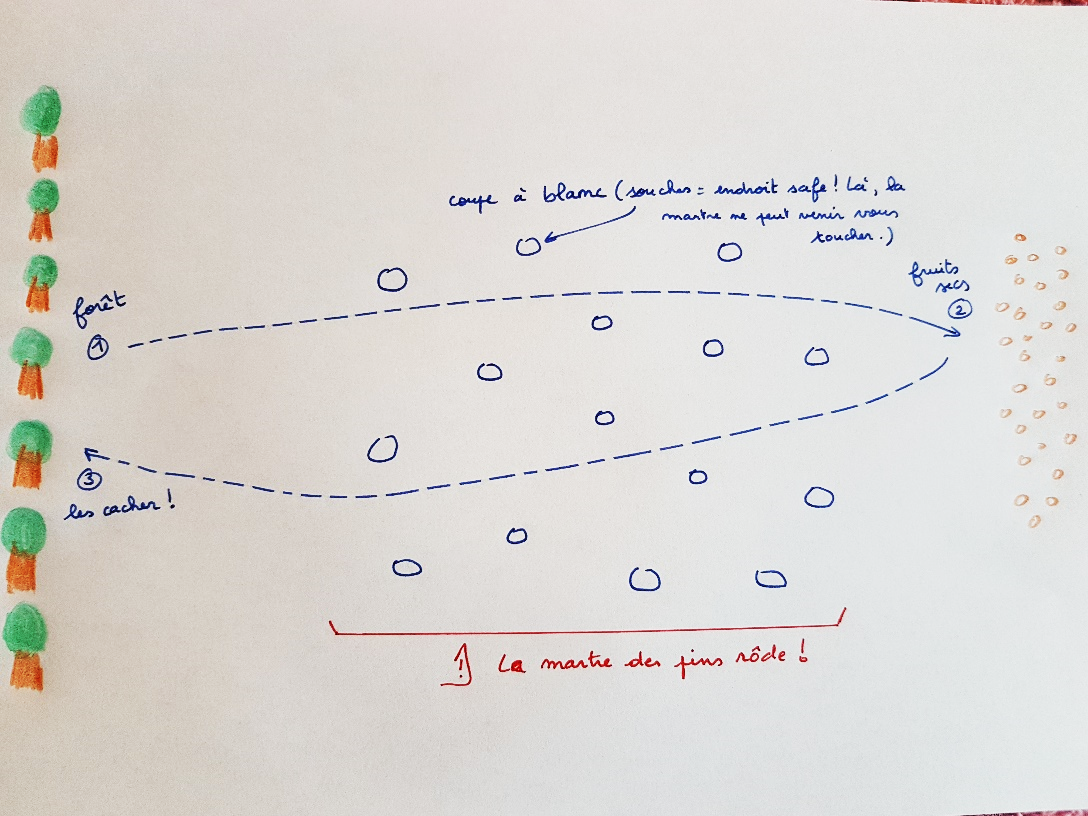 coupe à blanc (souches = endroit safe ! Là, la
martre ne peut venir vous
toucher.)
fruits
secs
②
forêt
①
③
les cacher !
! La martre des pins rôde !